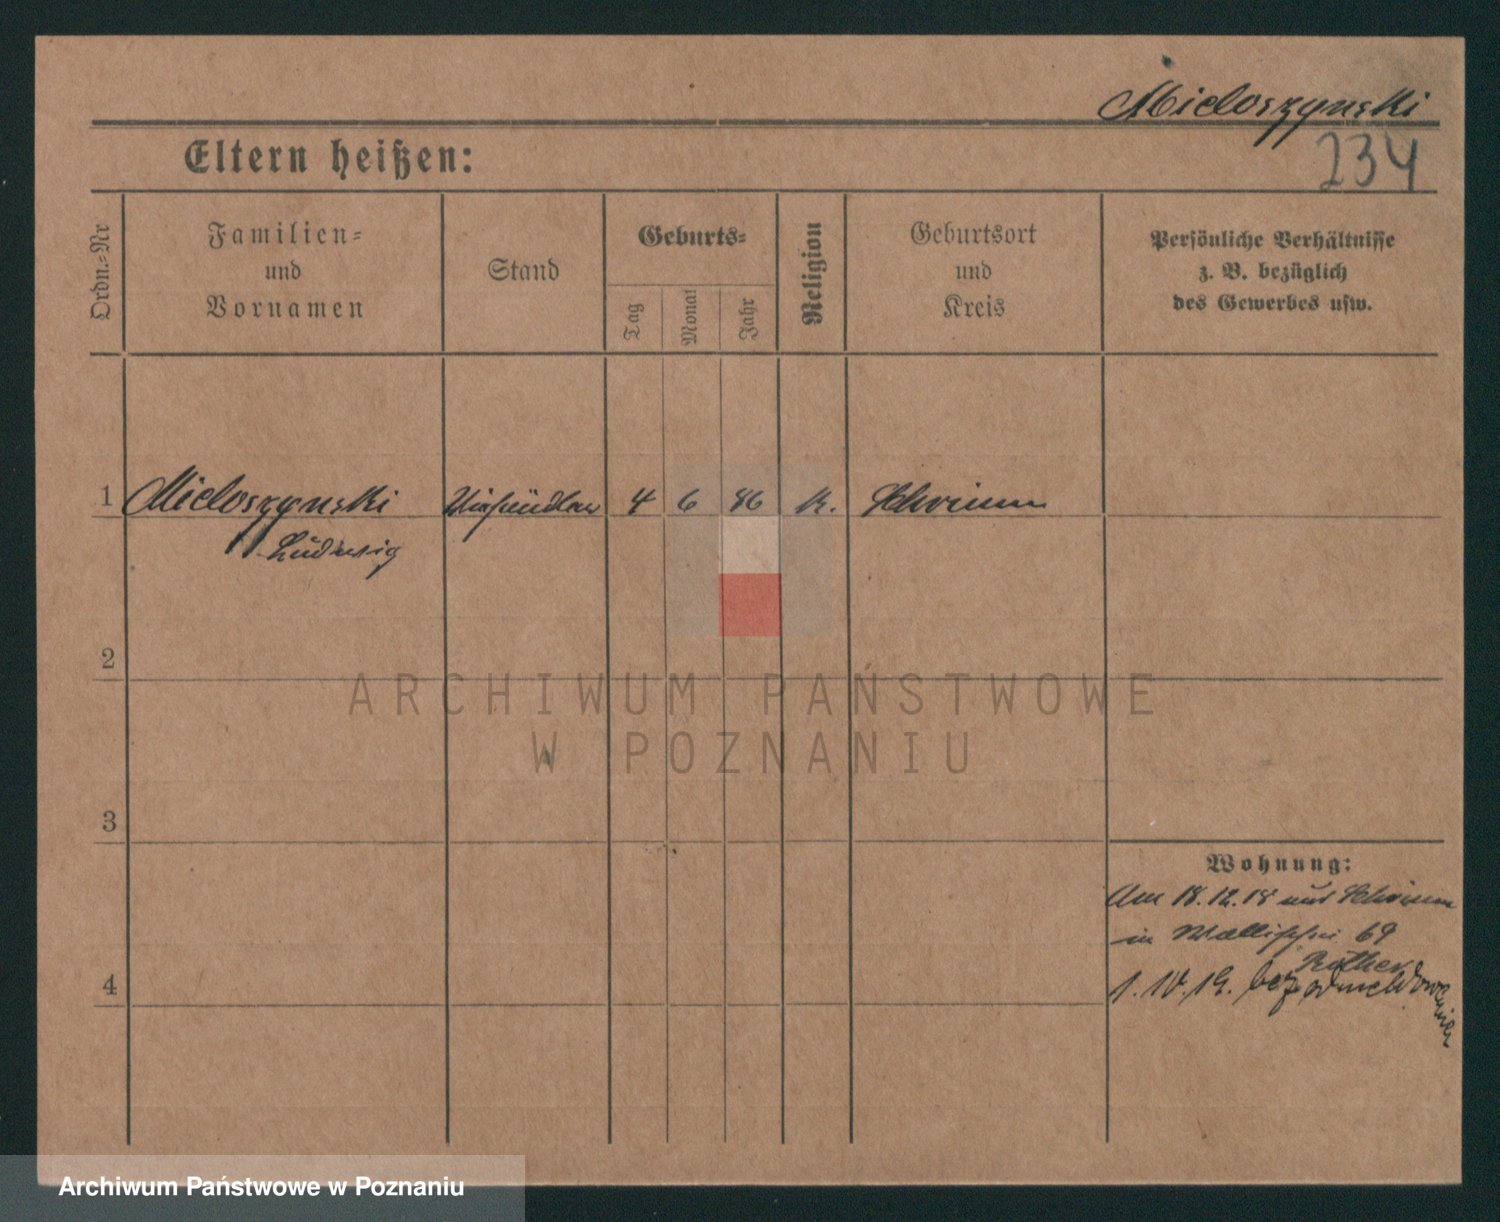 Mieloszynski
234
Eltern heißen:
Ordn.=Nr
Familien=
und
Vornamen
Stand
Geburts=
Tag
Monat
Jahr
Religion
Geburtsort
und
Kreis
Persönliche Verhältnisse
z. B. bezüglich
des Gewerbes usw.
1 Mieloszynski Viehändler 4 6 86 k. Schrimm
Ludwig
2
ARCHIWUM PAŃSTWOWE
W POZNANIU
3
Wohnung:
Am 18.12.18 aus Schrimm
in Wallischei 69
Rother
4
1.10.19. bez odmeldowania
Archiwum Państwowe w Poznaniu